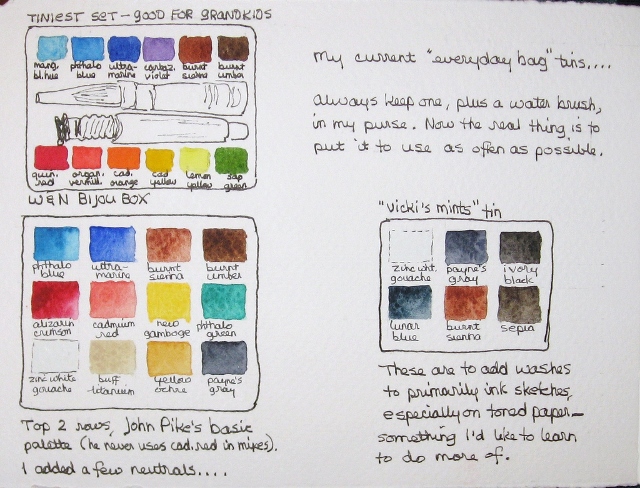 TINIEST SET - GOOD FOR GRANDKIDS
mang. bl. hue
phthalo blue
ultra-marine
carbaz. violet
burnt sienna
burnt umber
quin. red
organ. vermil.
cad. orange
cad yellow
lemon yellow
sap green
W&N BIJOU BOX
phthalo blue
ultra-marine
burnt sienna
burnt umber
alizarin crimson
cadmium red
new gamboge
phthalo green
zinc white gouache
buff titanium
yellow ochre
payne's gray
Top 2 rows, John Pike's basic
palette (he never uses cad. red in mixes).
I added a few neutrals....
My current "everyday bag" tins....
Always keep one, plus a water brush,
in my purse. Now the real thing is to
put it to use as often as possible.
"Vicki's mints" tin
zinc wht. gouache
payne's gray
ivory black
lunar blue
burnt sienna
sepia
These are to add washes
to primarily ink sketches,
especially on toned paper—
something I'd like to learn
to do more of.